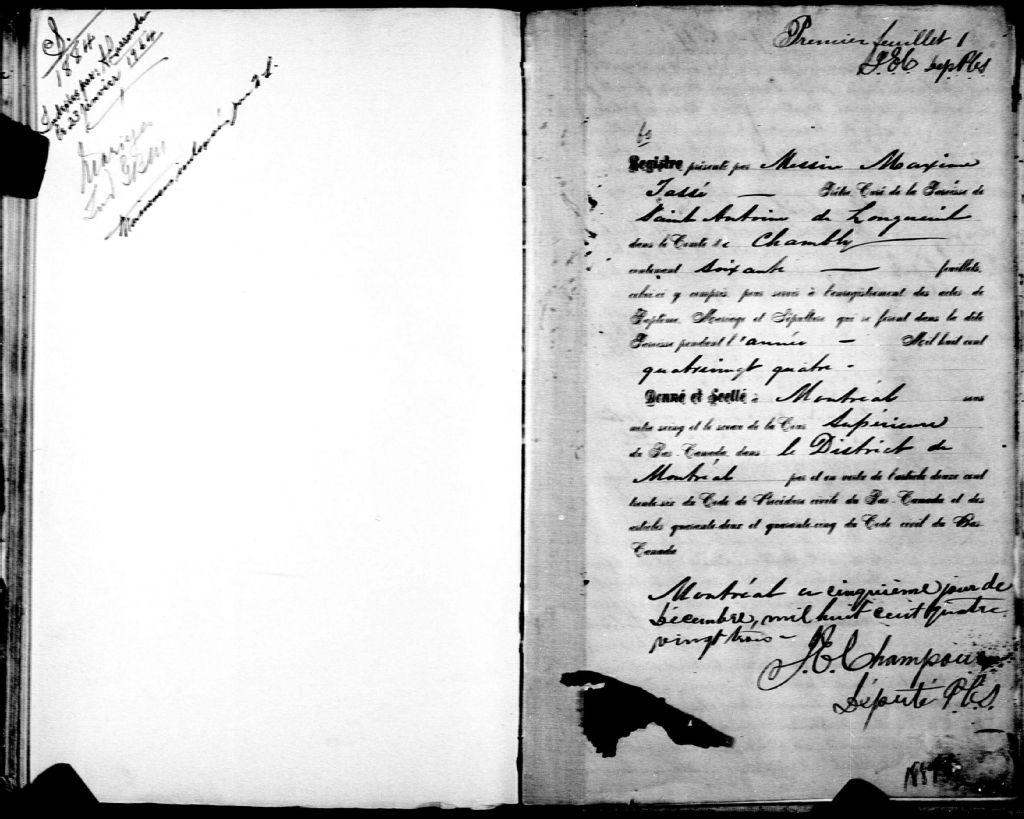 S.
1884
le 23 janvier 1964
Mariages
Ind
Premier feuillet 1
J.E.C. Dep P.C.S
60
Registre présenté par Messire Maxime
Tassé — Prêtre, Curé de la Paroisse de
Saint Antoine de Longueuil
dans le Comté de Chambly
contenant Soixante — feuillets,
celui-ci y compris, pour servir à l'enregistrement des actes de
Baptême, Mariage et Sépulture qui se feront dans la dite
Paroisse pendant l'année — Mil huit cent
quatrevingt quatre -
Donné et Scellé à Montréal sous
notre seing et le sceau de la Cour Supérieure
du Bas-Canada, dans le District de
Montréal par et en vertu de l'article douze cent
trente-six du Code de Procédure civile du Bas-Canada et des
articles quarante-deux et quarante-cinq du Code civil du Bas
Canada
Montréal ce cinquième jour de
Décembre, mil huit cent quatre
vingt trois -
J.E. Champoux
Député P.C.S.